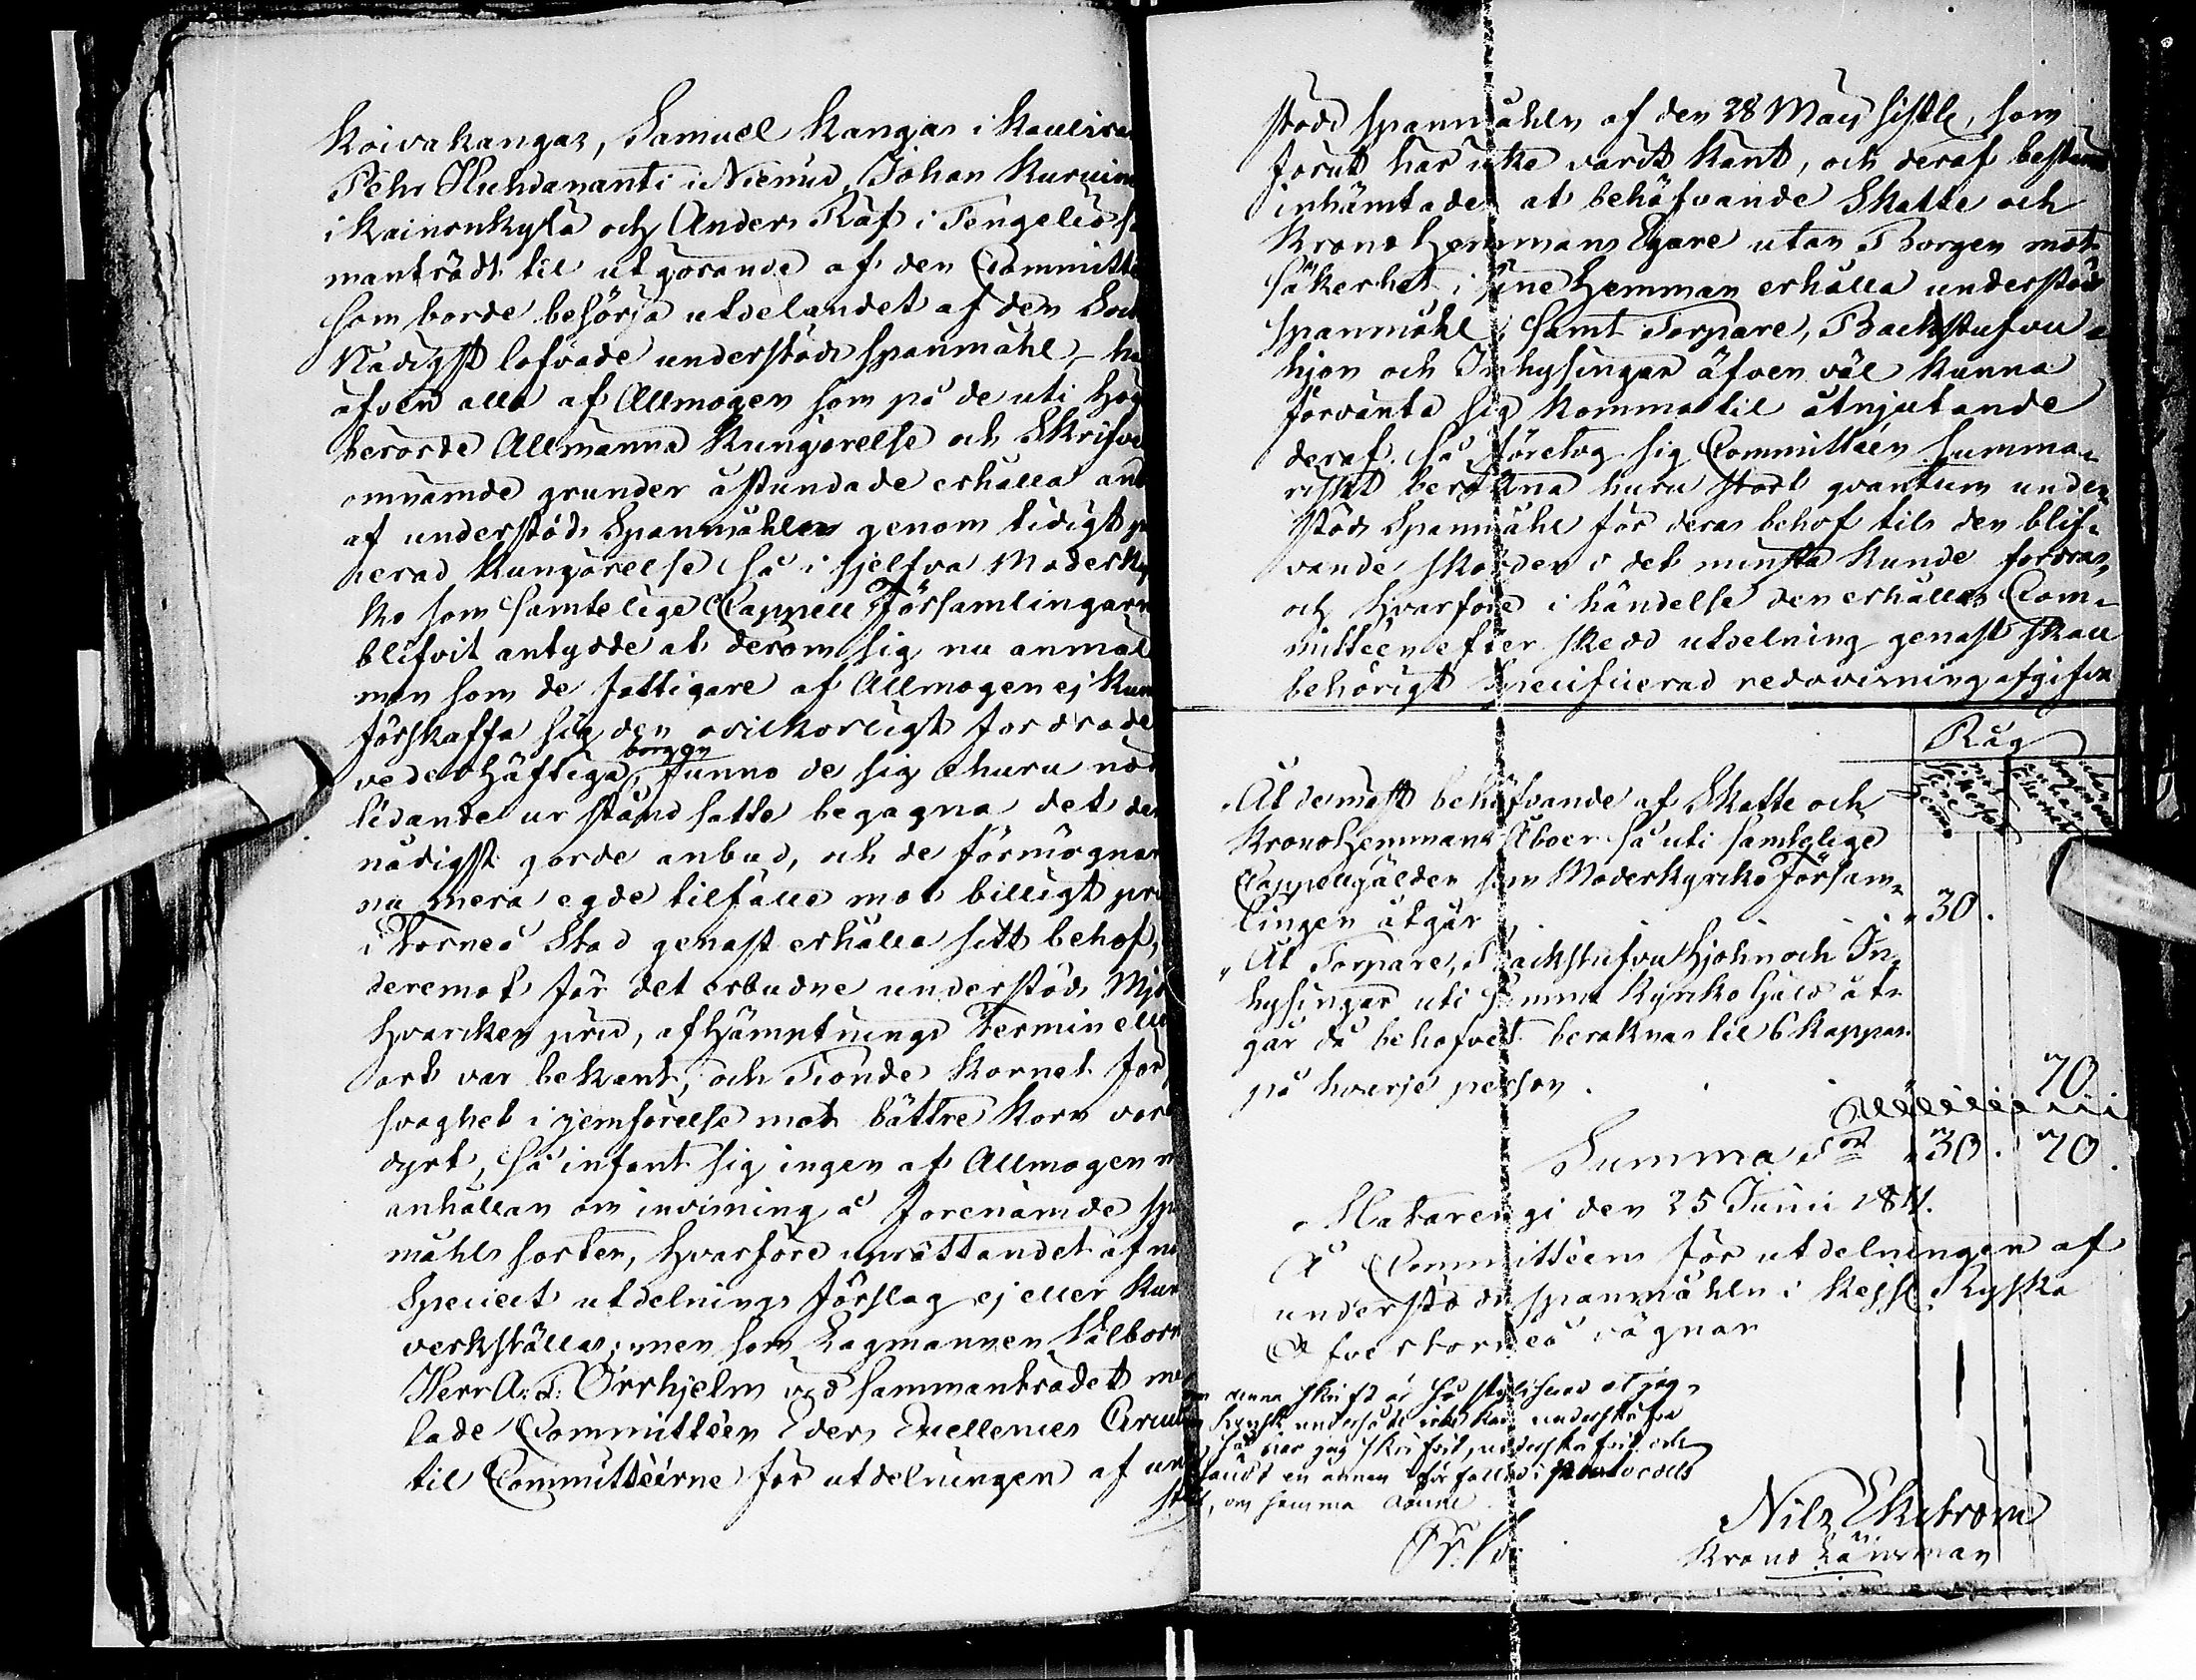 Koivakangas, Samuel Kangas i Kaulira
Pehr Huhdananti i Niemis, Johan Kuruin
i Kainonkylä och Anders Räf i Tengeliö
manträdt til utgörande af den Committ
som borde besörja utdelandet af den
Nådigst lofvade understöds spanmåhl, ha
äfven alla af Allmogen som på de uti hög
berörde Allmänna Kungörelse och Skrifve
omnämde grunder åstundade erhålla
af understöds Spanmåhlen genom tidigt
cerad Kungörelse så i sjelfva Moderky
ko som samtelige Cappell Församlingarn
blifvit antydde at derom sig nu anmäl
men som de fattigare af Allmogen ej kun
förskaffa sig den ovilkorligt fordrade
vederhäftiga borgen, funno de sig ehuru nöd
lidande ur stånd satte begagna det
nådigst gorde anbud, och de förmögnar
nu mera egde tilfälle mot billigt pri
i Torneå Stad genast erhålla sitt behof,
deremot för det erbudne understöds Mjö
hvarcken pris, afhämtnings termin elle
ort var bekant, och Tionde Kornet för
svaghet i jemförelse mot bättre Korn
dyrt, så infant sig ingen af Allmogen
anhållan om invisning å förenämde sp
måhls sorter, hvarföre uprättandet af
Speciect utdelnings förslag ej eller kun
verkställas; men som Lagmannen Välborn
Herr A: F: Örrhjelm vid sammanträdet me
lade Committéen Eders Excellences Circul
til Committéerne för utdelningen af un
stöds spannmåhln af den 28 Maij sistle, som
förut har icke varit kant, och deraf
inhämtades at behöfvande Skatte och
Krono hemmans Egare utan Borgen mot
Säkerhet i sine Hemman erhålla understöds
spanmåhl, samt Torpare, Backstufvu
hjon och Inhysingar äfven väl kunna
förvänta sig komma til åtnjutande
deraf, så företog sig Committéen summa=
riskt beräkna huru stort qvantum under
stöds Spanmåhl för deras behof tils den blif=
vande skörden i det minsta kunde fordras,
och hvarföre i händelse den erhålles Com=
mittéen efter skedd utdelning genast skall
behörigt specificerad redovisning afgifva
Råg
mot säkerhet i sine hemman
utan borgen
Åt de mäst behöfvande af Skatte och
Krono Hemmans Åboer så uti samtelige
Cappellgälden som Moderkyrko Försam=
lingen åtgår . . . 30.
Åt Torpare, Backstufvu hjohn och In=
hysingar uti samma Kyrko Gäld åt=
går då behofvet beräknas til 6 kappar
på hvarje person . . . 70
Summa 30. 70.
Matarengi den 25 Junii 1811.
Å Committéens för utdelningen af
understöds spanmåhln i Kejserl. Ryska
Öfvertorneå vägnar
denna skrift är så at jag
Svensk undersåte icke kan underskrifva
så har jag skrifvit, underskrifvit och
sändt en annan författad i Protocolls
om samma ämne
Nils Ekström
Krono Länsman